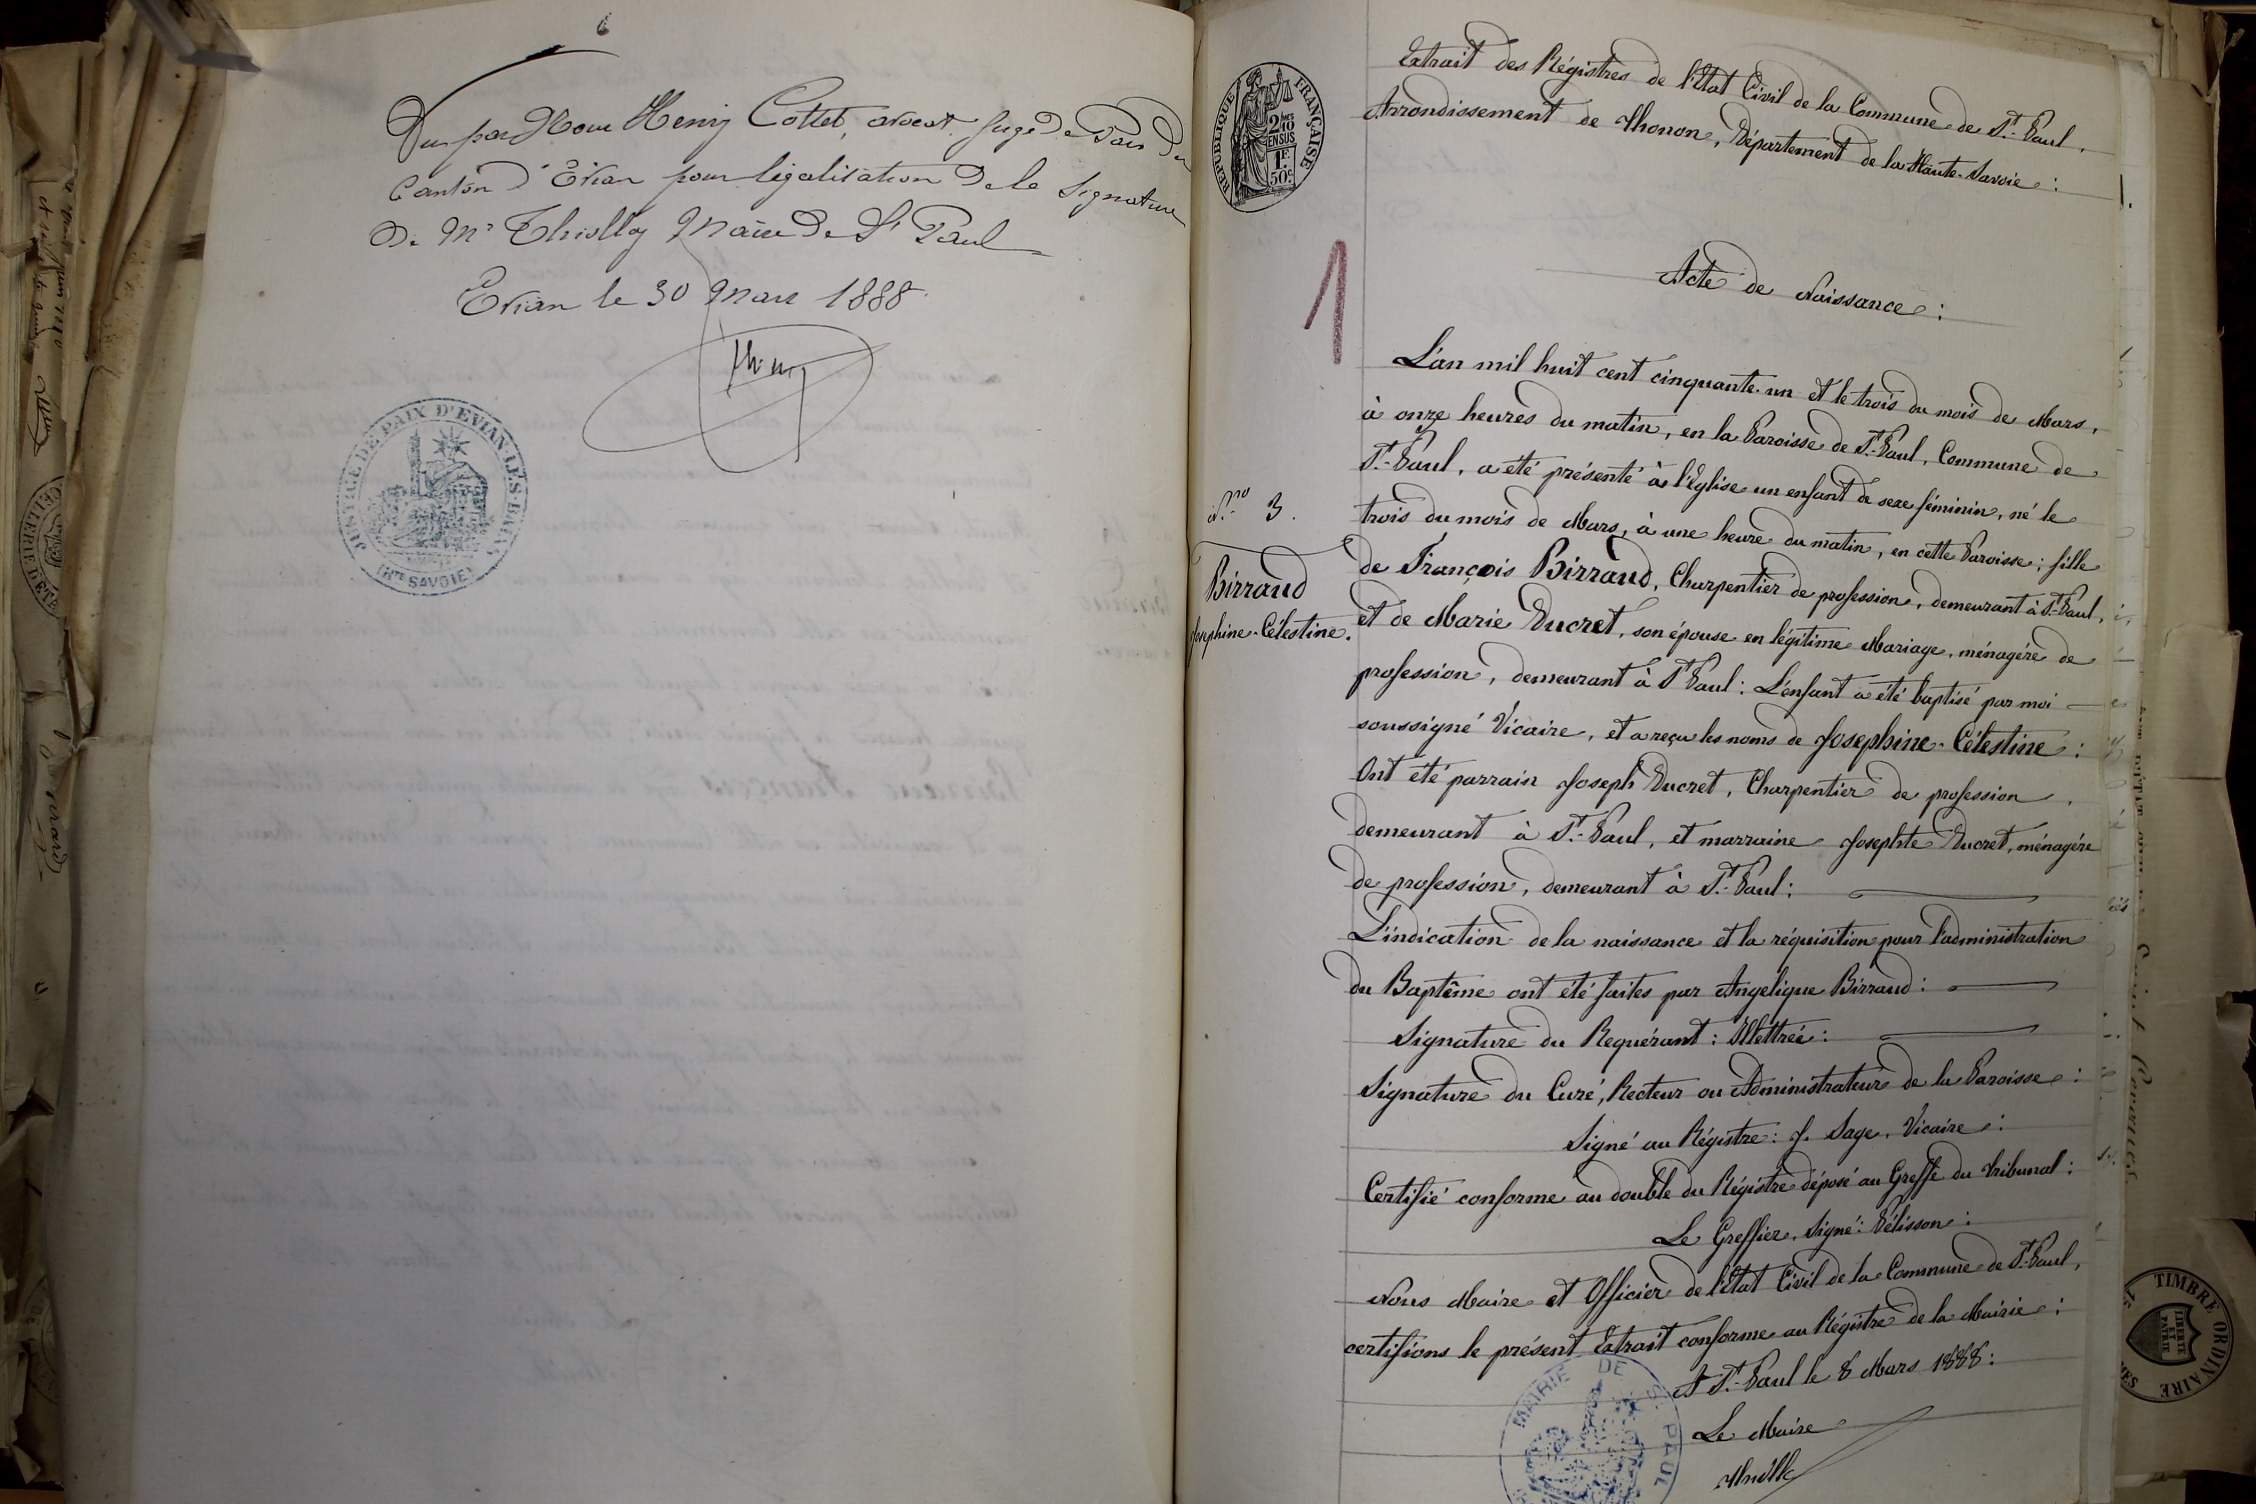 6
Vu par Nous Henry Cottet, avocat Juge de Paix du
Canton d'Evian pour légalisation de la signature
de Mr Thiolly Maire de St Paul
Evian le 30 Mars 1888.
JUSTICE DE PAIX D'EVIAN-LES-BAINS
(HTE SAVOIE)
REPUBLIQUE FRANÇAISE
2/10 EN SUS
1F 50c
Extrait des Régistres de l'Etat Civil de la Commune de St. Paul,
Arrondissement de Thonon, Département de la Haute-Savoie :
1
Acte de Naissance :
L'an mil huit cent cinquante-un et le trois du mois de Mars,
à onze heures du matin, en la Paroisse de St. Paul, Commune de
St. Paul, a été présenté à l'Eglise un enfant de sexe féminin, né le
No 3.
trois du mois de Mars, à une heure du matin, en cette Paroisse ; fille
Birraud
Josephine-Célestine.
de François Birraud, Charpentier de profession, demeurant à St. Paul,
et de Marie Ducret, son épouse en légitime Mariage, ménagère de
profession, demeurant à St Paul : L'enfant a été baptisé par moi
soussigné Vicaire, et a reçu les noms de Josephine-Célestine :
Ont été parrain Joseph Ducret, Charpentier de profession,
demeurant à St. Paul, et marraine Josephte Ducret, ménagère
de profession, demeurant à St. Paul :
L'indication de la naissance et la réquisition pour l'administration
du Baptême ont été faites par Angelique Birraud :
Signature du Requérant : Illettrée :
Signature du Curé, Recteur ou Administrateur de la Paroisse :
Signé au Régistre : J. Sage, Vicaire :
Certifié conforme au double du Régistre déposé au Greffe du Tribunal :
Le Greffier, Signé : Pélisson :
Nous Maire et Officier de l'Etat Civil de la Commune de St. Paul,
certifions le présent Extrait conforme au Régistre de la Mairie :
A St. Paul le 8 Mars 1888 :
Le Maire
Thiolly
MAIRIE DE ST PAUL
TIMBRE ORDINAIRE
LIBERTE ET PATRIE